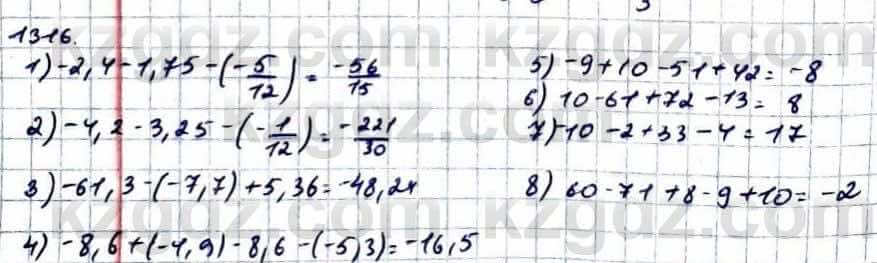 1316.
1) -2,4 - 1,75 - (-5/12) = -56/15
2) -4,2 - 3,25 - (-1/12) = -221/30
3) -61,3 - (-7,7) + 5,36 = -48,24
4) -8,6 + (-4,9) - 8,6 - (-5,3) = -16,5
5) -9 + 10 - 51 + 42 = -8
6) 10 - 61 + 72 - 13 = 8
7) -10 - 2 + 33 - 4 = 17
8) 60 - 71 + 8 - 9 + 10 = -2